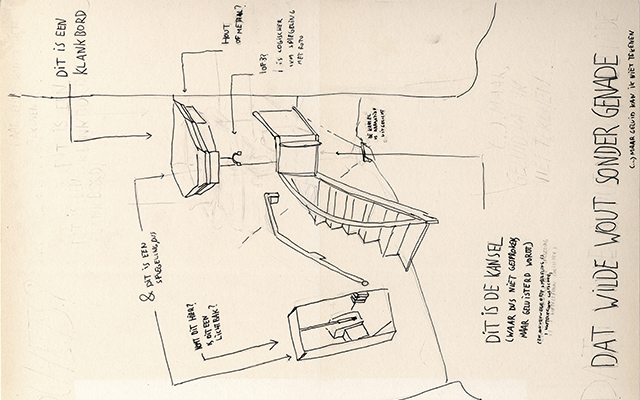 DIT IS EEN
KLANKBORD
HOUT
OF METAAL?
1 OF 3?
1 IS LOGISCHER
IVM SPIEGELING
MET FOTO
& DIT IS EEN
SPIEGELING DUS
KOMT DIT HIER?
& DIT EEN
LICHTBAK?
DIT IS DE KANSEL
(WAAR DUS NIET GESPROKEN
MAAR GELUISTERD WORDT)
DAT WILDE WOUT SONDER GENADE
(...) MAAR GELUID KAN IK NIET TEKENEN